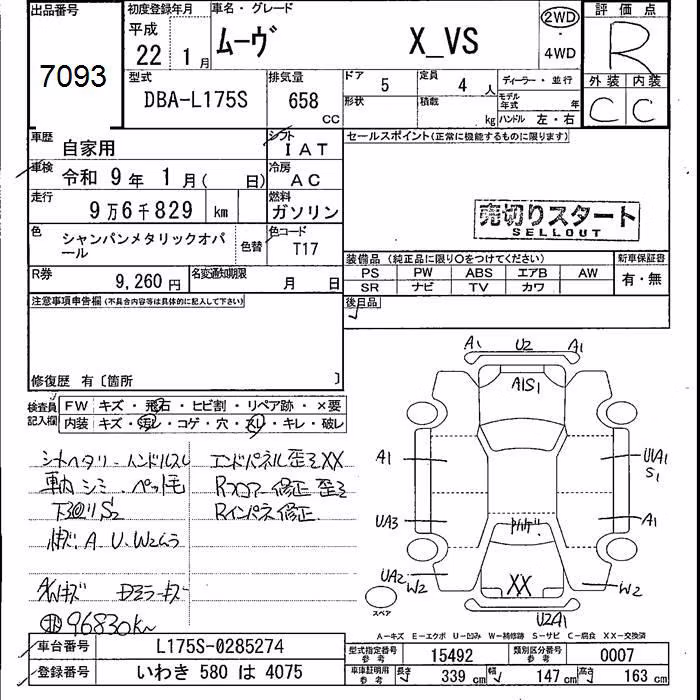 出品番号
7093
初度登録年月
平成
22 1月
車名・グレード
ムーヴ X_VS
2WD
・
4WD
評価点
R
外装 内装
C C
型式
DBA-L175S
排気量
658
CC
ドア
5
定員
4 人
形状
積載
kg
ディーラー・並行
モデル
年式
年
ハンドル 左・右
車歴
自家用
シフト
IAT
セールスポイント(正常に機能するものに限ります)
車検
令和 9年 1月( 日)
冷房
AC
走行
9万6千829 km
燃料
ガソリン
売切りスタート
SELLOUT
色
シャンパンメタリックオパ
ール
色替
色コード
T17
装備品 (純正品に限り○をつけてください)
新車保証書
PS PW ABS エアB AW
SR ナビ TV カワ
有・無
R券
9,260 円
名変通知期限
月 日
後日品
注意事項申告欄(不具合内容等は具体的に記入して下さい)
修復歴 有〔箇所 〕
検査員
記入欄
FW キズ・飛石・ヒビ割・リペア跡・×要
内装 キズ・汚レ・コゲ・穴・スレ・キレ・破レ
シートヘタリ ハンドルスレ
車内シミ ペット毛
下廻りS2
A.U.W2ムラ
A/Wキズ Dミラーキズ
96830km
エンドパネル歪ミXX
Rフロアー修正 歪ミ
Rインパネ修正
A1 U2 A1
A1S1
A1
U1A1
S1
UA3
A1
UA2
W2
XX
W2
U2A1
スペア
A-キズ E-エクボ U-凹み W-補修跡 S-サビ C-腐食 XX-交換済
車台番号
L175S-0285274
登録番号
いわき 580 は 4075
型式指定番号
参考
15492
類別区分番号
参考
0007
車庫証明用
参考
長さ 339 cm
幅 147 cm
高さ 163 cm